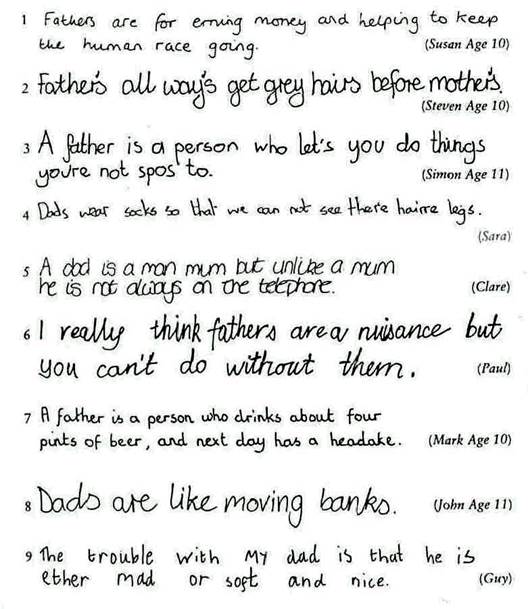 1 Fathers are for erning money and helping to keep
the human race going. (Susan Age 10)
2 Father's all way's get grey hairs before mother's.
(Steven Age 10)
3 A father is a person who let's you do things
you're not spos to. (Simon Age 11)
4 Dads wear socks so that we can not see there hairre legs.
(Sara)
5 A dad is a man mum but unlike a mum
he is not always on the telephone. (Clare)
6 I really think fathers are a nuisance but
you can't do without them. (Paul)
7 A father is a person who drinks about four
pints of beer, and next day has a headake. (Mark Age 10)
8 Dads are like moving banks. (John Age 11)
9 The trouble with My dad is that he is
ether mad or soft and nice. (Guy)